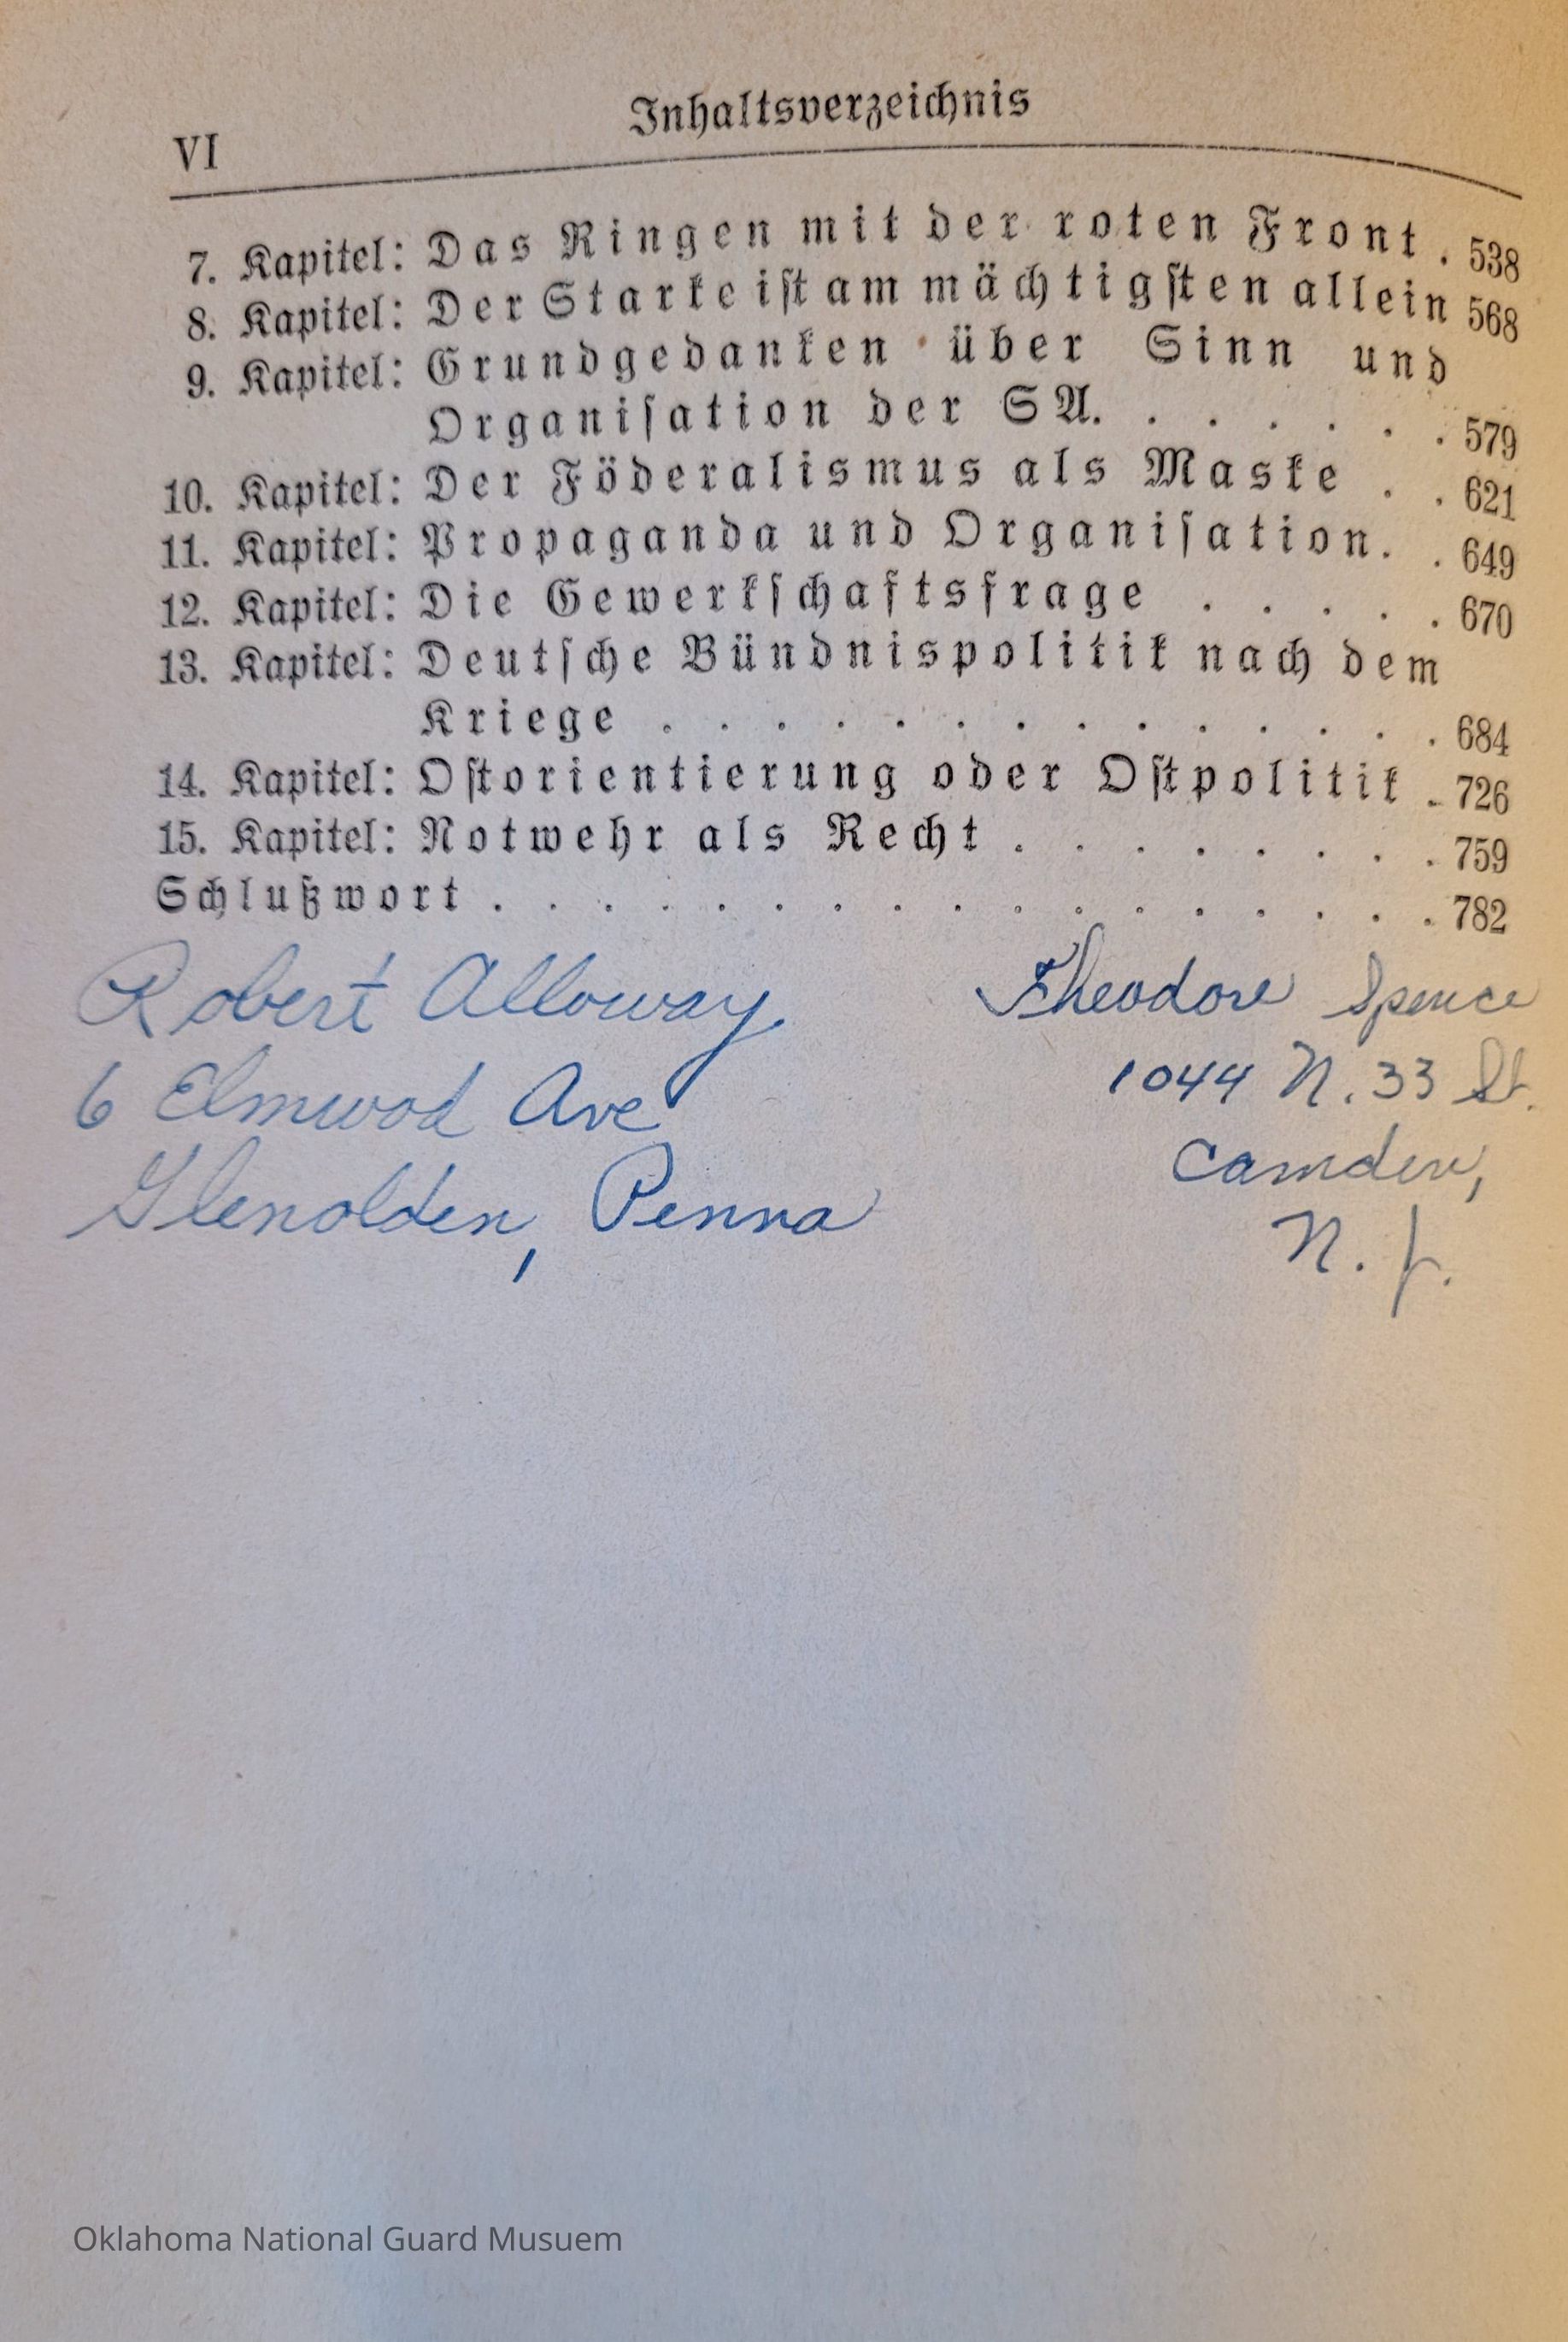 VI
Inhaltsverzeichnis
7. Kapitel: Das Ringen mit der roten Front . 538
8. Kapitel: Der Starke ist am mächtigsten allein 568
9. Kapitel: Grundgedanken über Sinn und
Organisation der SA. . . . . . . 579
10. Kapitel: Der Föderalismus als Maske . . 621
11. Kapitel: Propaganda und Organisation. . 649
12. Kapitel: Die Gewerkschaftsfrage . . . . . 670
13. Kapitel: Deutsche Bündnispolitik nach dem
Kriege . . . . . . . . . . . . . . 684
14. Kapitel: Ostorientierung oder Ostpolitik . 726
15. Kapitel: Notwehr als Recht . . . . . . . . 759
Schlußwort . . . . . . . . . . . . . . . . . 782
Robert Alloway
6 Elmwood Ave
Glenolden, Penna
Theodore Spence
1044 N. 33 St.
Camden,
N. J.
Oklahoma National Guard Musuem